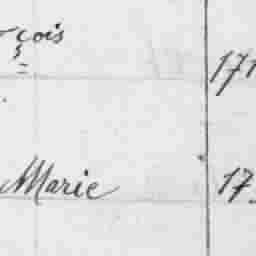 çois 171
Marie 17